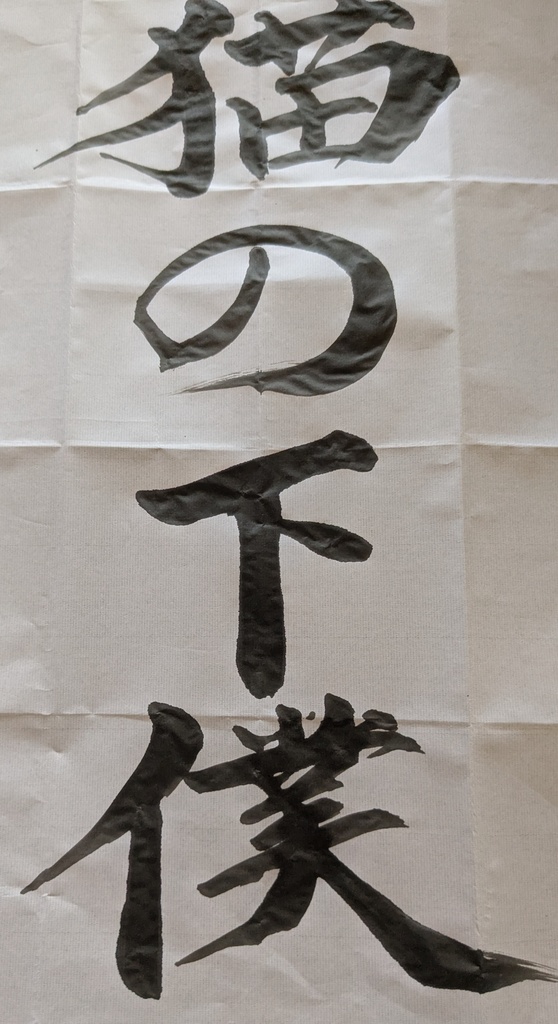 猫の下僕